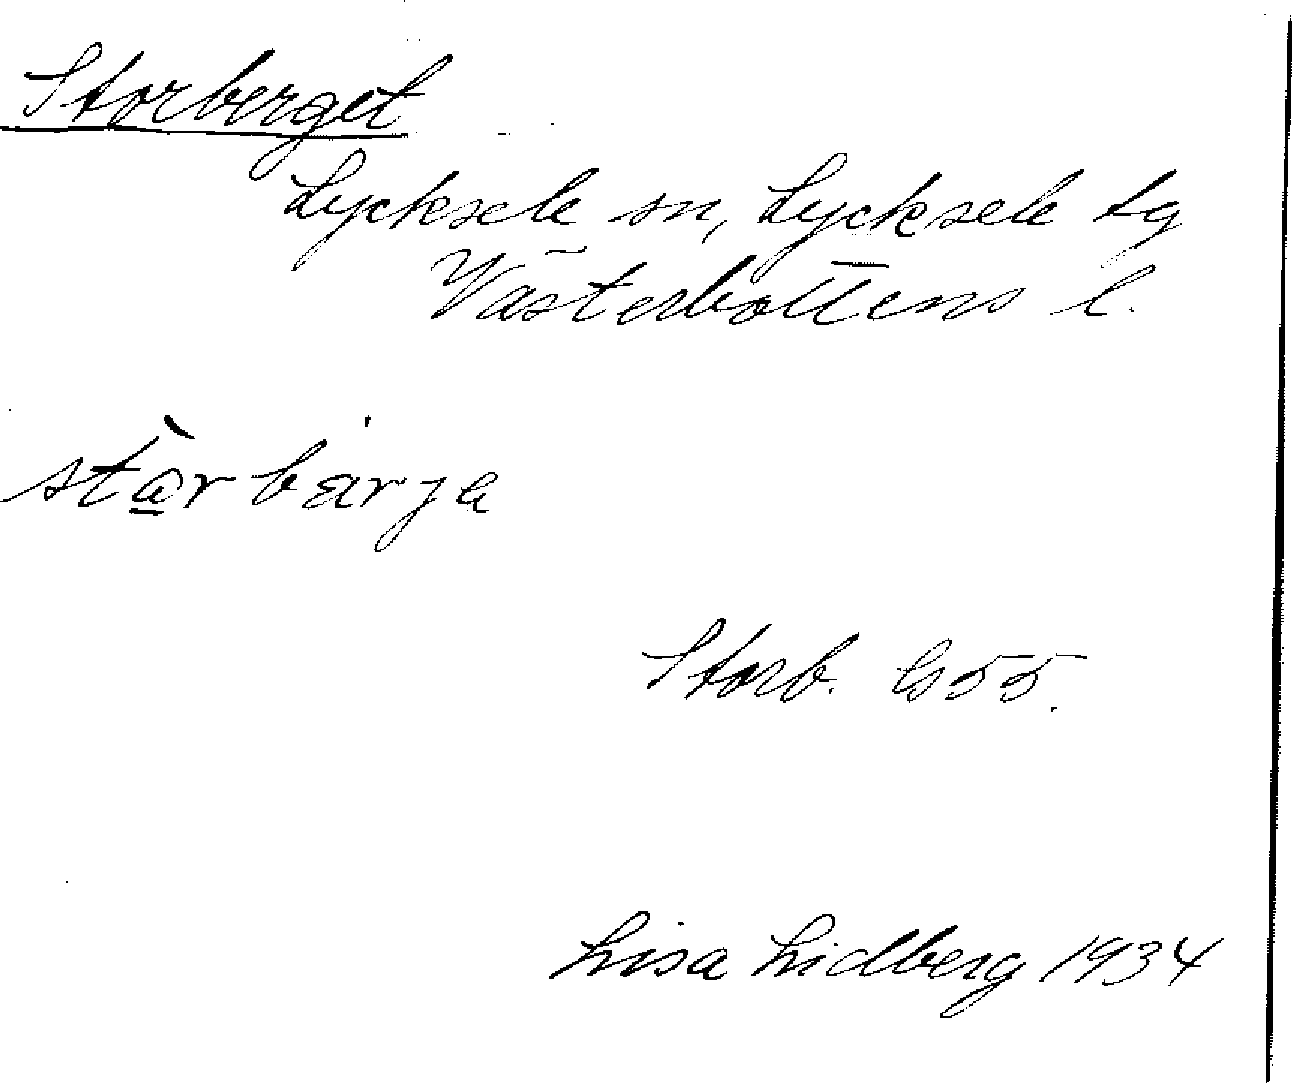 Storberget
Lycksele sn, Lycksele tg
Västerbottens l.
Storb. G55.
Lisa Lidberg 1934